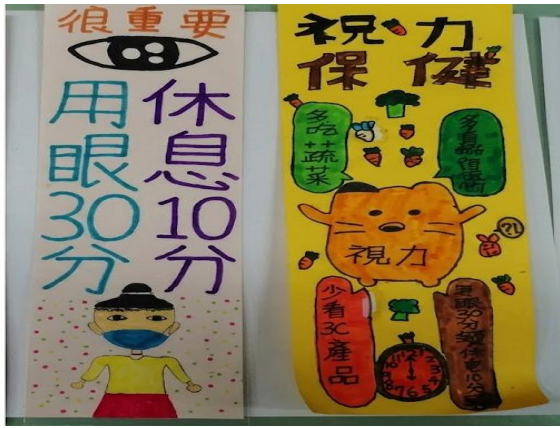 很重要
用眼30分
休息10分
視力
保健
多吃蔬菜
多看
視力
少看3C產品
眼30分 休息10分